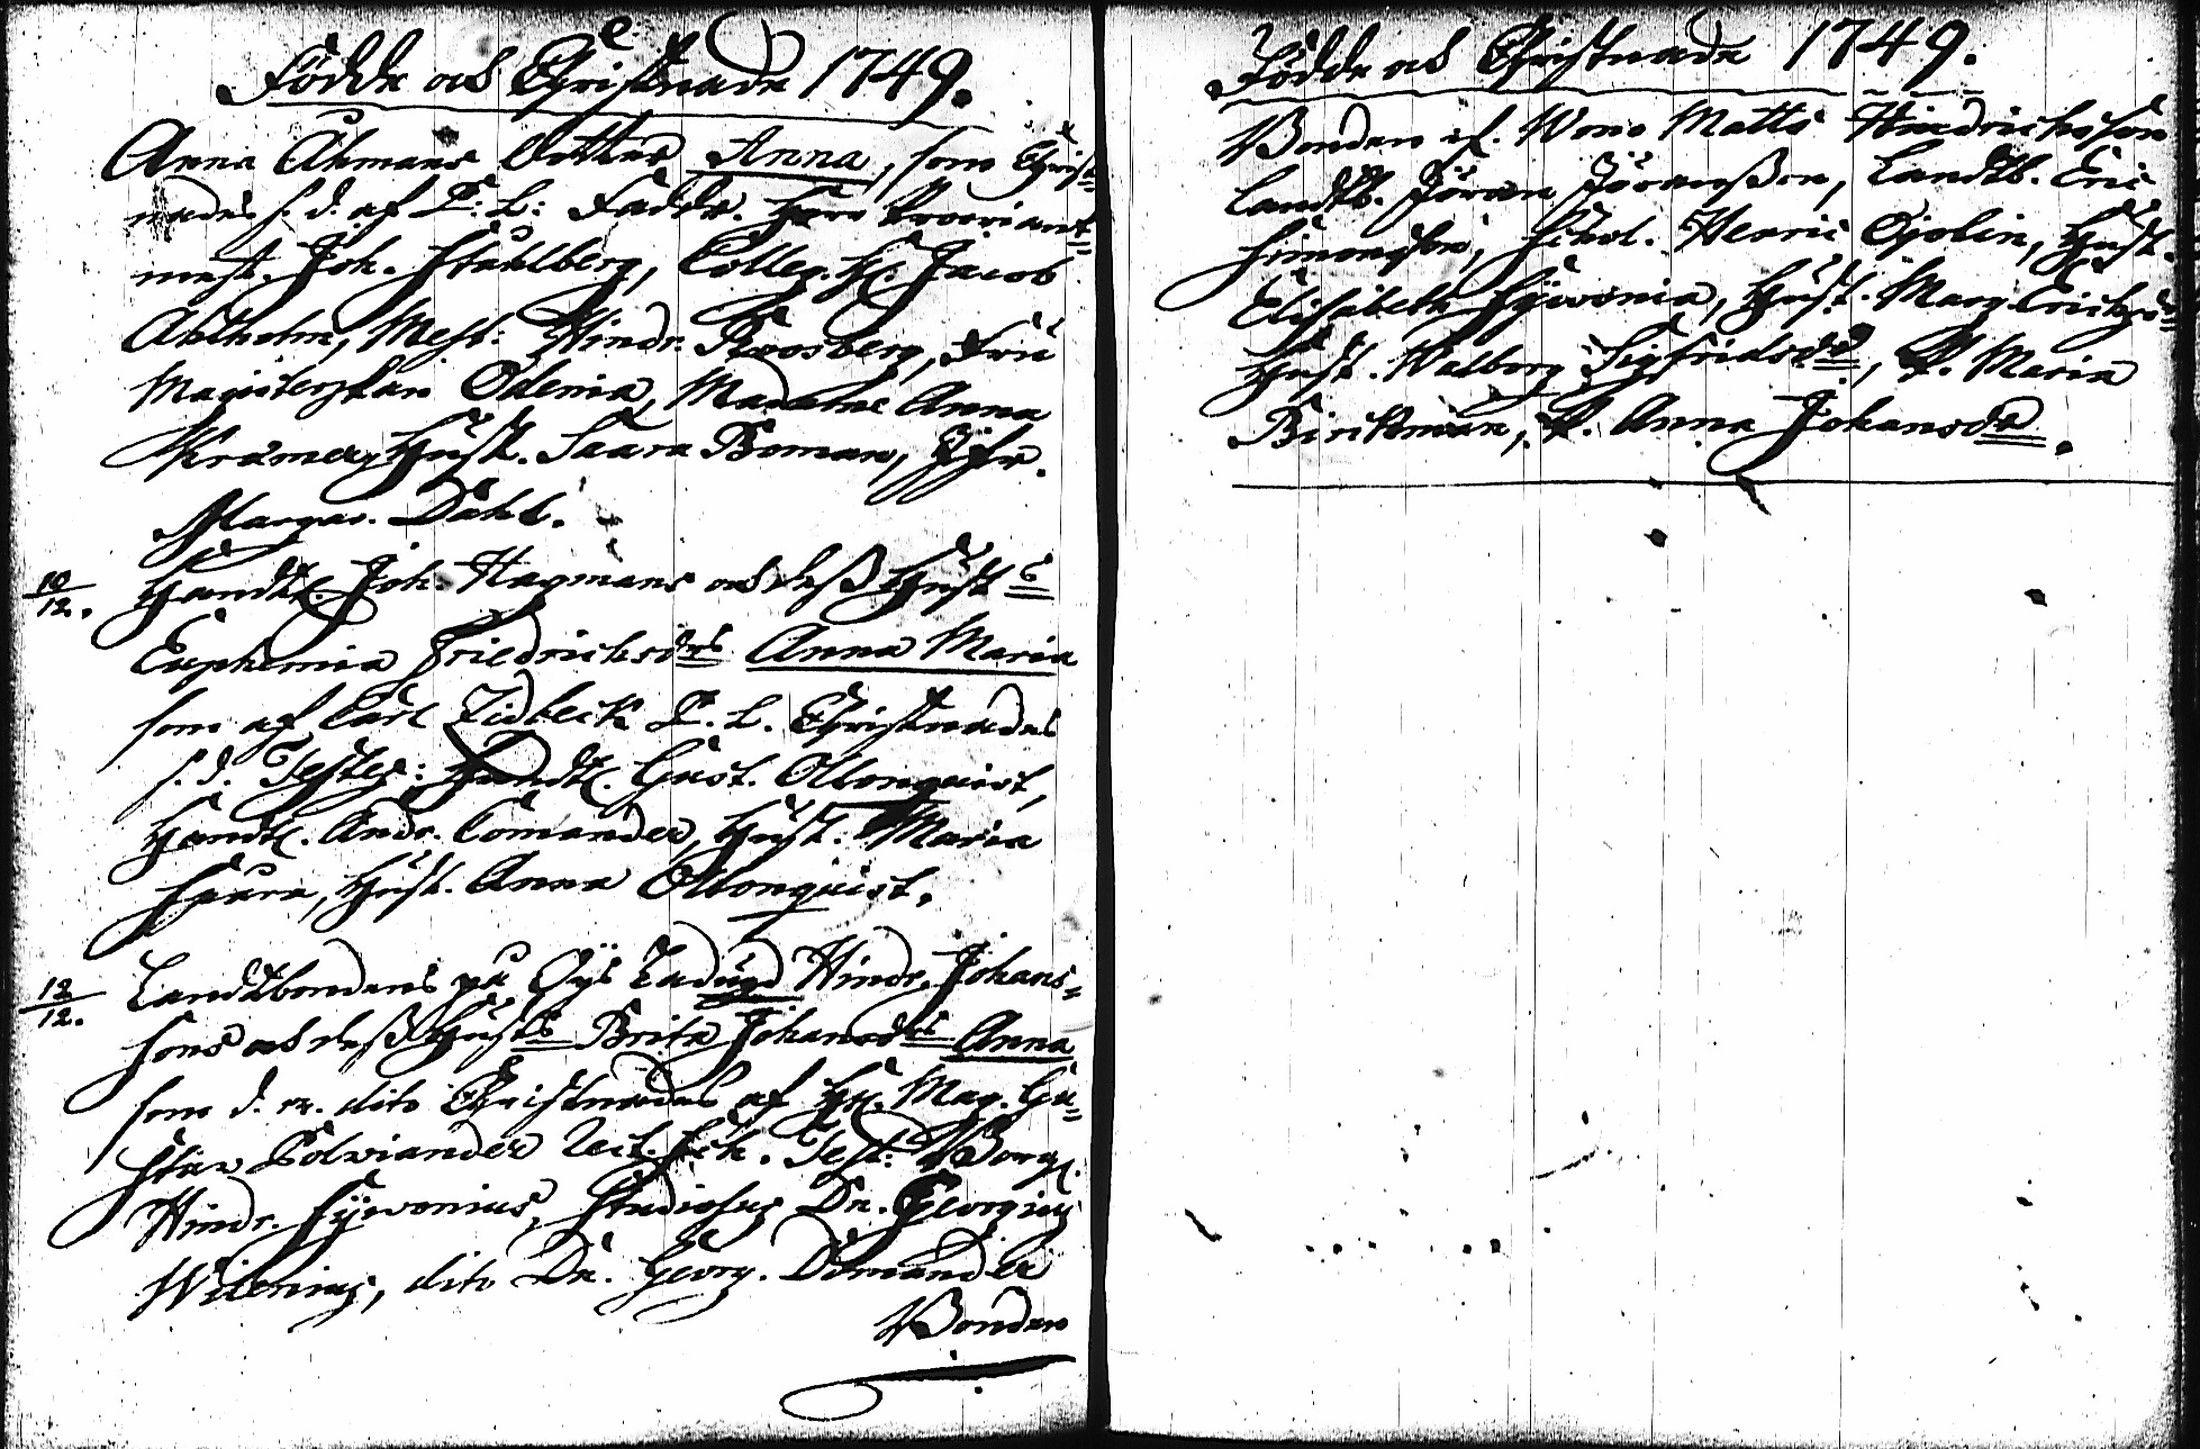 Födde och Christnade 1749.
Anna Åhmans dotter Anna, som Christ=
nades s. d. af P: L: Faddr. Herr Proviant=
mest. Joh. Stahlberg, Colleg. Hr. Jacob
Ahlholm, Mest: Hindr. Roosberg, Fru
Magisterskan Odenia, Madame Anna
Kramer, Hust. Saara Boman, Jfr.
Margar. Dahl.
10/12. Handl. Joh. Hagmans och dess Hust s
Euphemia Friedrichsdrs Anna Maria
som af Carl Lidbeck P. L. Christnades
s. d. Testes: Handl. Gust. Ollonquist,
Handl. Andr. Comander, Hust. Maria
Hust. Anna Ollonquist.
12/12. Landtbondens på Hindr. Johans=
sons och dess Husts Brita Johansdrs Anna
som d. dito Christnades af Hr. Mag. Gu=
stav Polviander Rect. Sch. Test: Borg.
Hindr. Sywonius, Studiosus Dn. Georgius
Wilenius, dito Dn. Georg. Domander
Bonden
Födde och Christnade 1749.
Bonden Matts Hindrichsson
Landtb. Jöran Jöransson, Landtb. Eric
Simonsson, Schol. Henric Hust.
Elisabeth Sywonia, Hust. Marg. Erichsdr
Hust. Walborg Sigfridsdr, P. Maria
Birckman, P. Anna Johansdr.